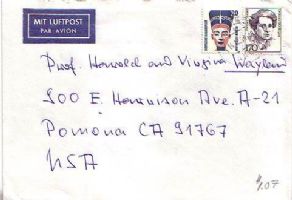 MIT LUFTPOST
PAR AVION
Prof. Harold and Virginia Wayland
900 E. Harrison Ave. A-21
Pomona CA 91767
USA